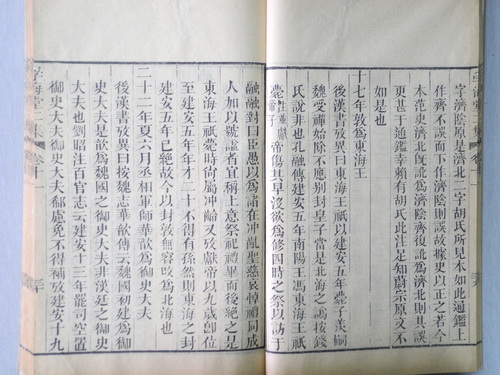 字濟陰原是濟北二字胡氏所見本如此通鑑上
作齊不誤而下作濟陰則誤故據史以正之若今
本范史濟北既訛爲濟陰齊復訛爲濟北則其誤
更甚于通鑑幸賴有胡氏此注足知蔚宗原文不
如是也
十七年敦爲東海王
後漢書攷異曰東海王祇以建安五年薨子羨嗣
魏受禪始除不應别封皇子當是北海之譌按錢
氏說非也孔融傳建安五年南陽王馮東海王祇
薨帝傷其早沒欲爲修四時之祭以訪于
融融對曰臣愚以爲諸在冲亂聖慈哀悼禮同成
人加以號諡者宜稱上意祭祀禮畢而後絕之是
東海王祇薨時尙屬冲齡又攷獻帝以九歲卽位
至建安五年年才二十不得有孫然則東海之封
建安五年已絕故今以封敦無容改爲北海也
二十二年夏六月丞相軍師華歆爲御史大夫
後漢書攷異曰按魏志華歆傳云魏國初建爲御
史大夫是歆爲魏國之御史大夫非漢廷之御史
大夫也劉昭注百官志云建安十三年罷司空置
御史大夫御史大夫郗慮免不得補攷建安十九
學海堂二集
卷十一